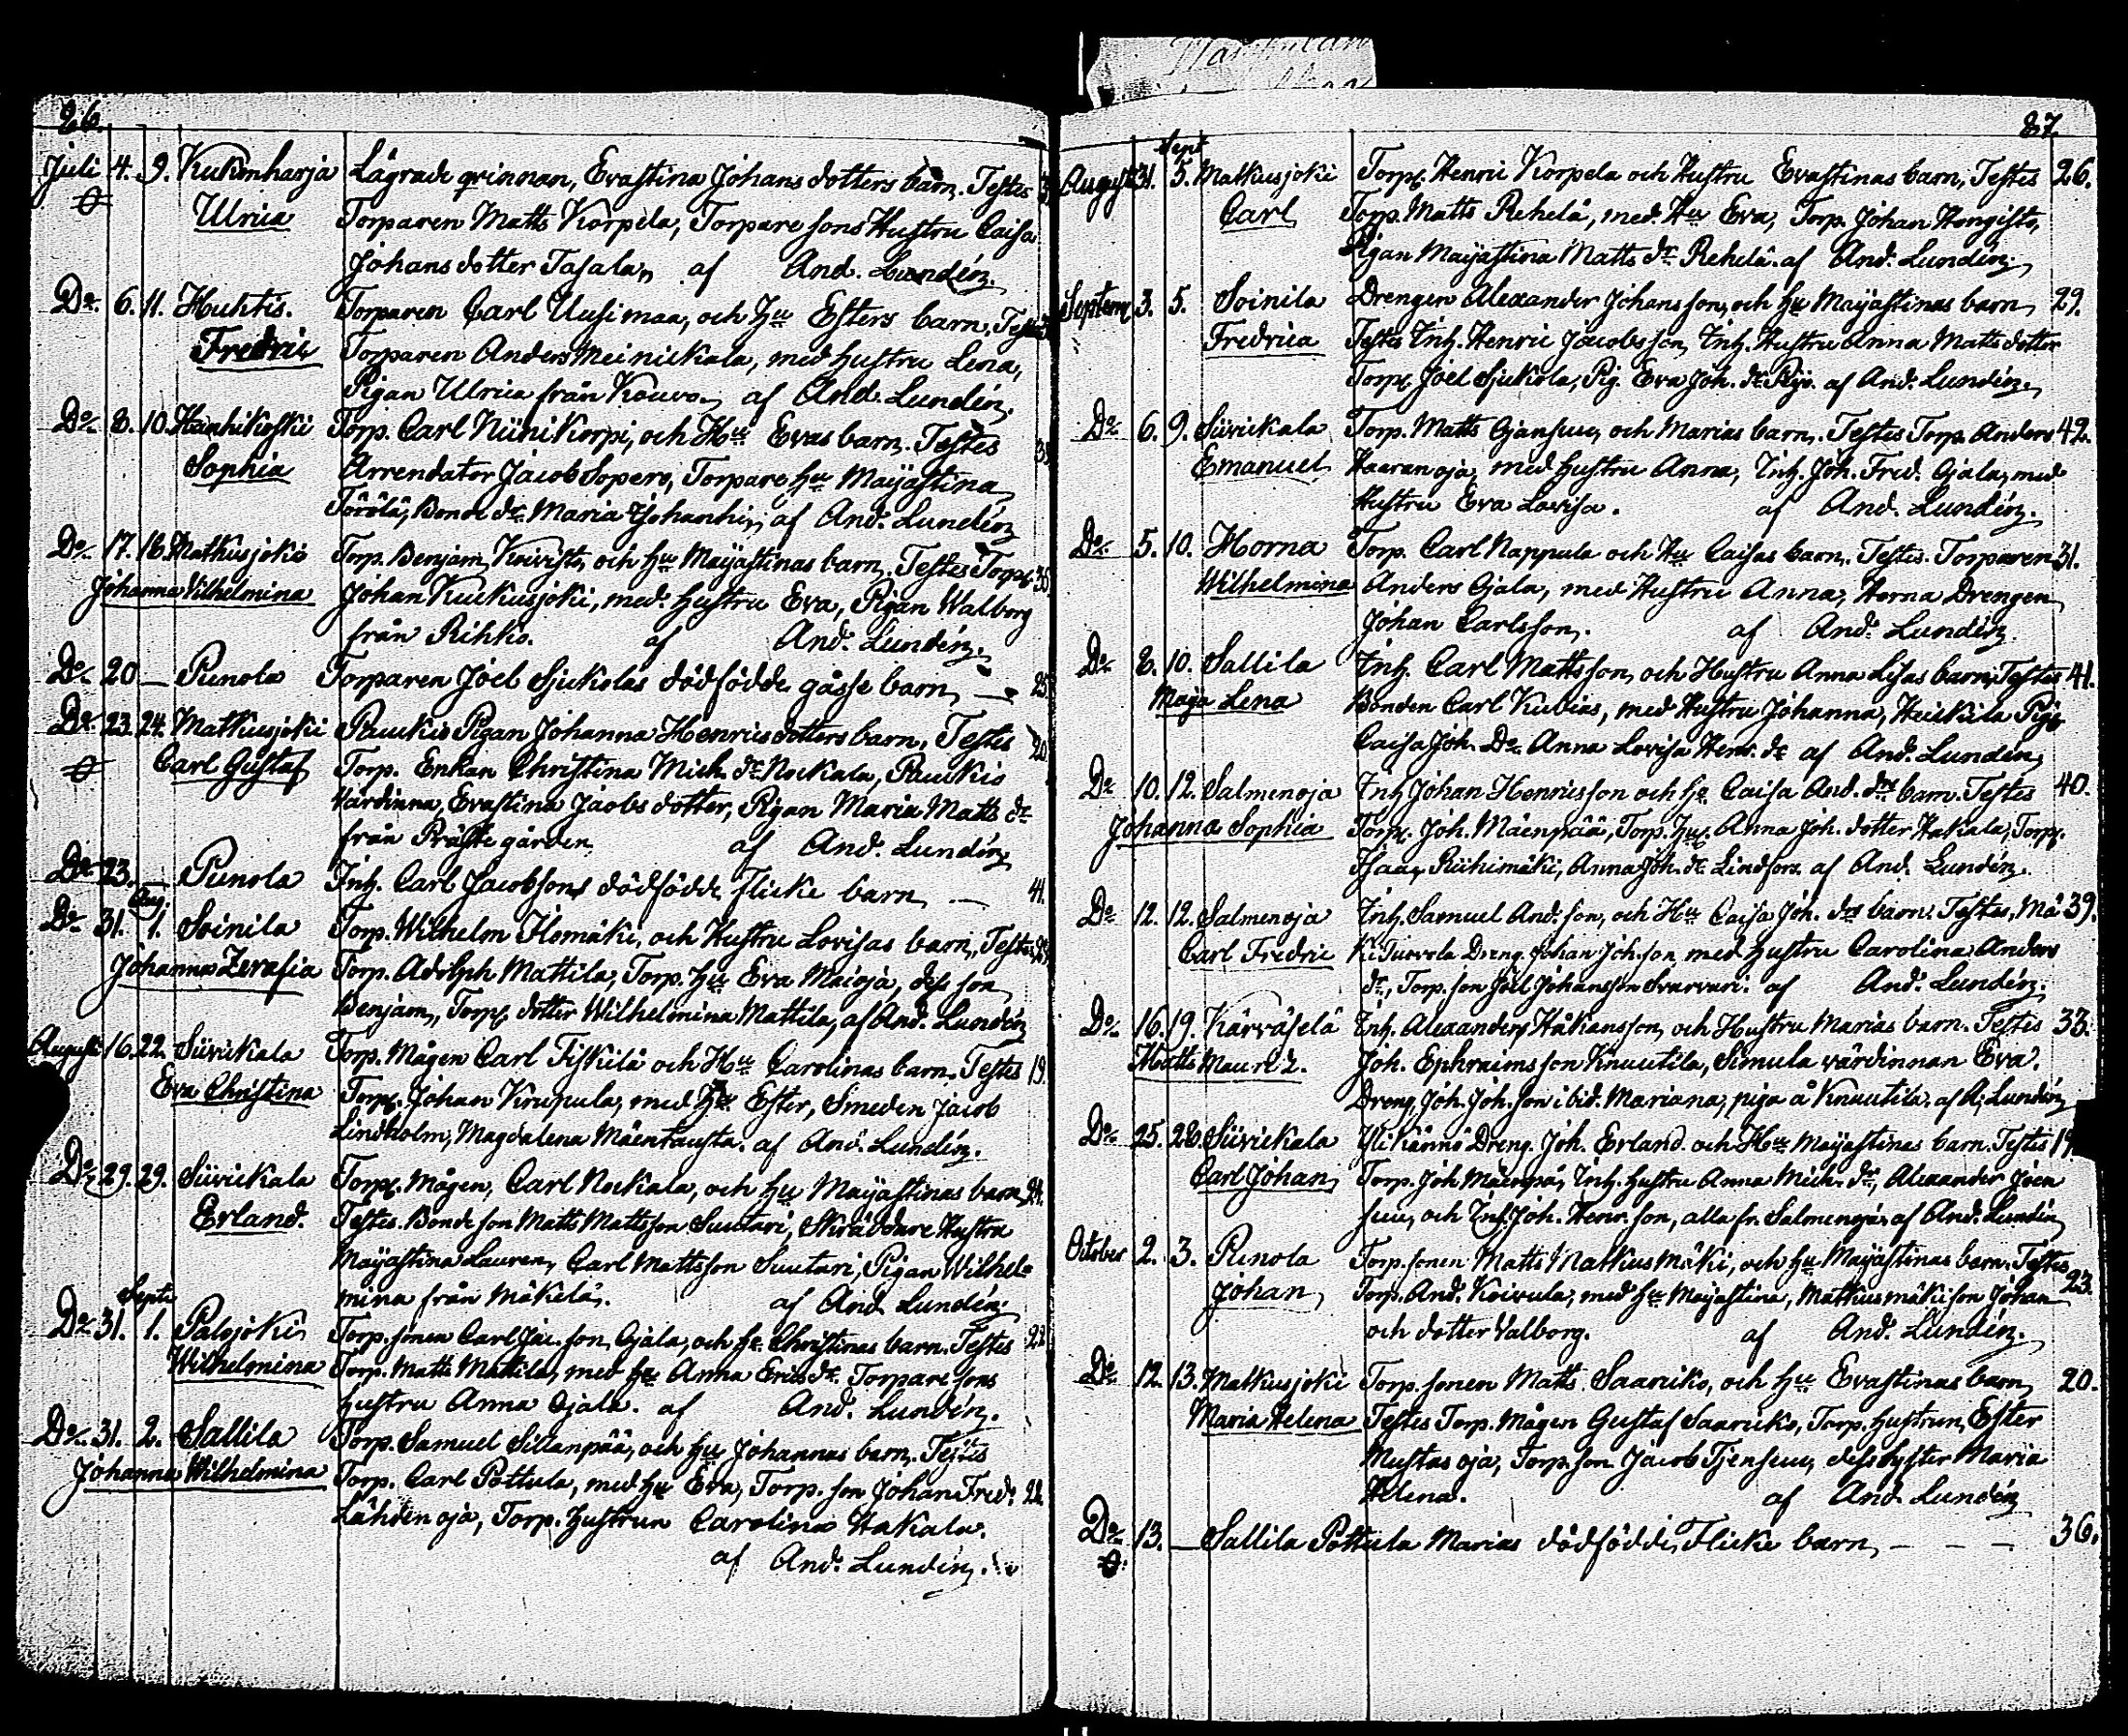 26.
Juli 4. 9. Kukonharja Lägrade qvinnan, Evastina Johans dotters barn. Testes
Ulrica Torparen Matts Korpela, Torpare sons Hustru Caisa
Johans dotter Tasala, af And. Lundén.
Do 6. 11. Huhtis. Torparen Carl Uusimaa, och Hu Esters barn, Testes
Fredric Torparen Anders Meinickala, med hustru Lena,
Pigan Ulrica från Kouvo. af And. Lundén.
Do 8. 10. Hanhikoski Torp. Carl Niinikorpi, och Hu Evas barn. Testes
Sophia Arrendator Jacob Sopero, Torpare hu Maijastina
Törölä, Bonde dr Maria af And. Lundén
Do 17. 18. Matkusjoki Torp. Benjam. Koivisto och hu Maijastinas barn. Testes Torp.
Johanna Wilhelmina Johan Kuckusjoki, med hustru Eva, Pigan Walborg
från Rihko. af And. Lundén.
Do 20 — Punola Torparen Joel Sjukolas dödfödde gosse barn, — 25.
Do 23. 24. Matkusjoki Paukio Pigan Johanna Henricsdotters barn, Testes 20.
Carl Gustaf Torp. Enkan Christina Mich. dr Nockala, Paukio
Värdinna, Evastina Jacobs dotter, Pigan Maria Matts dr
från Prästegården af And. Lundén
Do 23. — Punola Inh. Carl Jacobsons dödfödde Flicke barn — 41.
Aug.
Do 31. 1. Soinila Torp. Wilhelm Ilomäki, och Hustru Lovisas barn, Testes
Johanna Zerafia Torp. Adolph Mattila, Torp. hu Eva Maioja, dess son
Benjam, Torp. dotter Wilhelmina Mattila, af And. Lundén
Augusti 16. 22. Siivickala Torp. Mågen Carl Fiskilä och Hu Carolinas barn. Testes 19.
Eva Christina Torp. Johan Krupula, med Hu Ester, Smeden Jacob
Lindholm, Magdalena Mäentausta. af And. Lundén.
Do 29. 29. Siivickala Torp. Mågen, Carl Nockala, och hu Maijastinas barn 24.
Erland. Testes. Bonde son Matts Mattsson Suutari, Skräddare Hustru
Maijastina Lauren, Carl Mattsson Suutari, Pigan Wilhel-
mina från Mäkelä. af And. Lundén.
Septe
Do 31. 1. Palojoki Torp. sonen Carl Jac. son Ojala, och hu Christinas barn. Testes
Wilhelmina Torp. Matts Mattila, med hu Anna Erics dr. Torpare sons
hustru Anna Ojala. af And. Lundén.
Do 31. 2. Sallila Torp. Samuel Sillanpää, och hu Johannas barn. Testes
Johanna Wilhelmina Torp. Carl Pottula, med hu Eva, Torp. son Johan Fred.
Lähdenoja, Torp. Hustrun Carolina Hakala.
af And. Lundén.
27.
Sept
Augusti 31. 5. Matkusjoki Torp. Henric Korpela och Hustru Evastinas barn, Testes 26.
Carl Torp. Matts Rehelä, med Hu Eva, Torp. Johan Hongisto,
Pigan Maijastina Matts dr Rehelä. af And. Lundén.
Septem 3. 5. Soinila Drengen Alexander Johansson, och hu Maijastinas barn 29.
Fredrica Testes Inh. Henric Jacobsson, Inh. Hustru Anna Matts dotter
Torp. Joel Sjukola, Pig. Eva Joh. dr af And. Lundén.
Do 6. 9. Siivickala Torp. Matts Ojansuu, och Marias barn. Testes Torp. Anders 42.
Emanuel Haaranoja, med hustru Anna, Inh. Joh. Fred. Ojala, med
Hustru Eva Lovisa. af And. Lundén.
Do 5. 10. Horna Torp. Carl Nappula och Hu Caisas barn, Testes. Torparen 31.
Wilhelmina Anders Ojala, med Hustru Anna, Horna Drengen
Johan Carlsson. af And. Lundén.
Do 8. 10. Sallila Inh. Carl Mattsson, och Hustru Anna Lisas barn, Testes 41.
Maja Lena Bonden Carl Kubias, med Hustru Johanna, Heickila Pig.
Caisa Joh. Dr Anna Lovisa Henr. dr af And. Lundén
Do 10. 12. Salmenoja Inh Johan Henricsson och hu Caisa And. drs barn. Testes 40.
Johanna Sophia Torp. Joh. Mäenpää, Torp. Hu. Anna Joh. dotter Hakala, Torp.
Isaac Riihimäki, Anna Joh. dr Lindfors. af And. Lundén.
Do 12. 12. Salmenoja Inh. Samuel And. son, och Hu Caisa Joh. drs barn. Testes, Mä 39.
Carl Fredric Ki Turvola Dreng. Johan Joh. son, med hustru Carolina Anders
dr, Torp. son Joel Johansson Svarvari. af And. Lundén.
Do 16. 19. Kärväselä Inh. Alexander Håkansson, och Hustru Marias barn. Testes 33.
Matts Maur I. Joh. Ephraimsson Knuutila, Simula värdinnan Eva.
Dreng, Joh. Joh. son ibid. Mariana, piga å Knuutila. af A. Lundén
Do 25. 28. Siivickala Ylikännö Dreng. Joh. Erland. och Hu Maijastinas barn. Testes 19.
Carl Johan Torp. Joh Mäenpä, Inh. hustru Anna Mich. dr, Alexander Joen
suu, och Inh. Joh. Henr. son, alla fr. Salmenoja. af And. Lundén
October 2. 3. Punola Torp. sonen Matts Matkusmäki, och hu Maijastinas barn. Testes 23.
Johan Torp. And. Koivula, med hu Maijastina, Matkusmäki son Johan
och dotter Valborg. af And. Lundén.
Do 12. 13. Matkusjoki Torp. sonen Matts Saariko, och hu Evastinas barn 20.
Maria Helena Testes Torp. Mågen Gustaf Saaricko, Torp. hustrun, Ester
Mustasoja, Torp. son Jacob Tjensuu, dess syster Maria
Helena. af And. Lundén
Do 13. — Sallila Pottula Marias dödfödde Flicke barn, — — — 36.